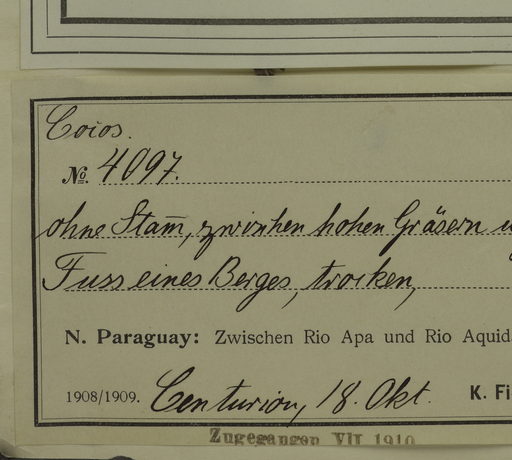 Cocos.
No. 4097.
ohne Stam̅, zwischen hohen Gräsern
Fuss eines Berges, trocken,
N. Paraguay: Zwischen Rio Apa und Rio Aquid
1908/1909. Centurion, 18. Okt. K. Fi
Zugegangen VII 1910